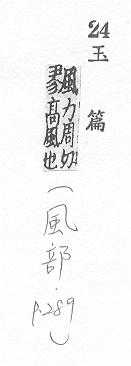 24 玉篇
飂力周切高風也
(風部·p.289)